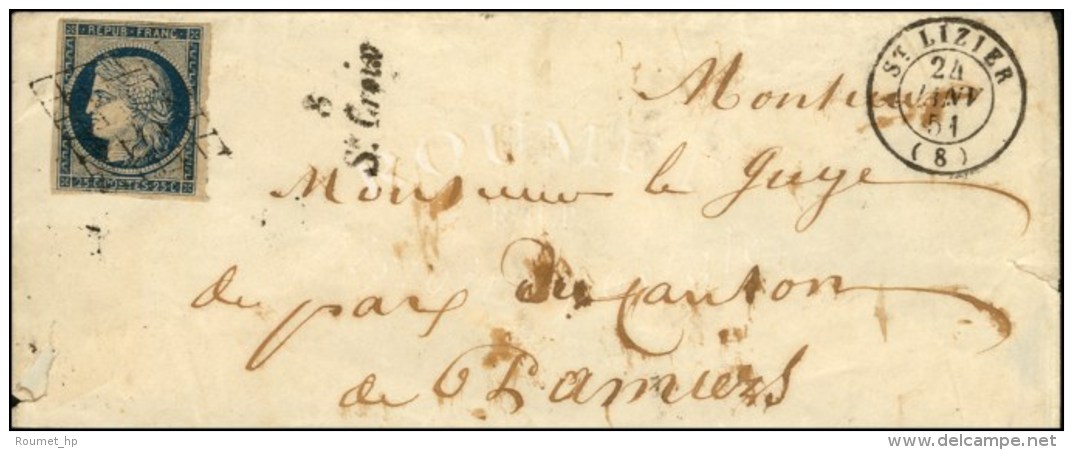 REPUB. FRANC.
25.C. POSTES. 25.C.
8
Ste Croix
ST LIZIER
24
JANV
51
(8)
Monsieur
Monsieur le Juge
de paix du Canton
de Pamiers
Roumet_hp
© delcampe.net